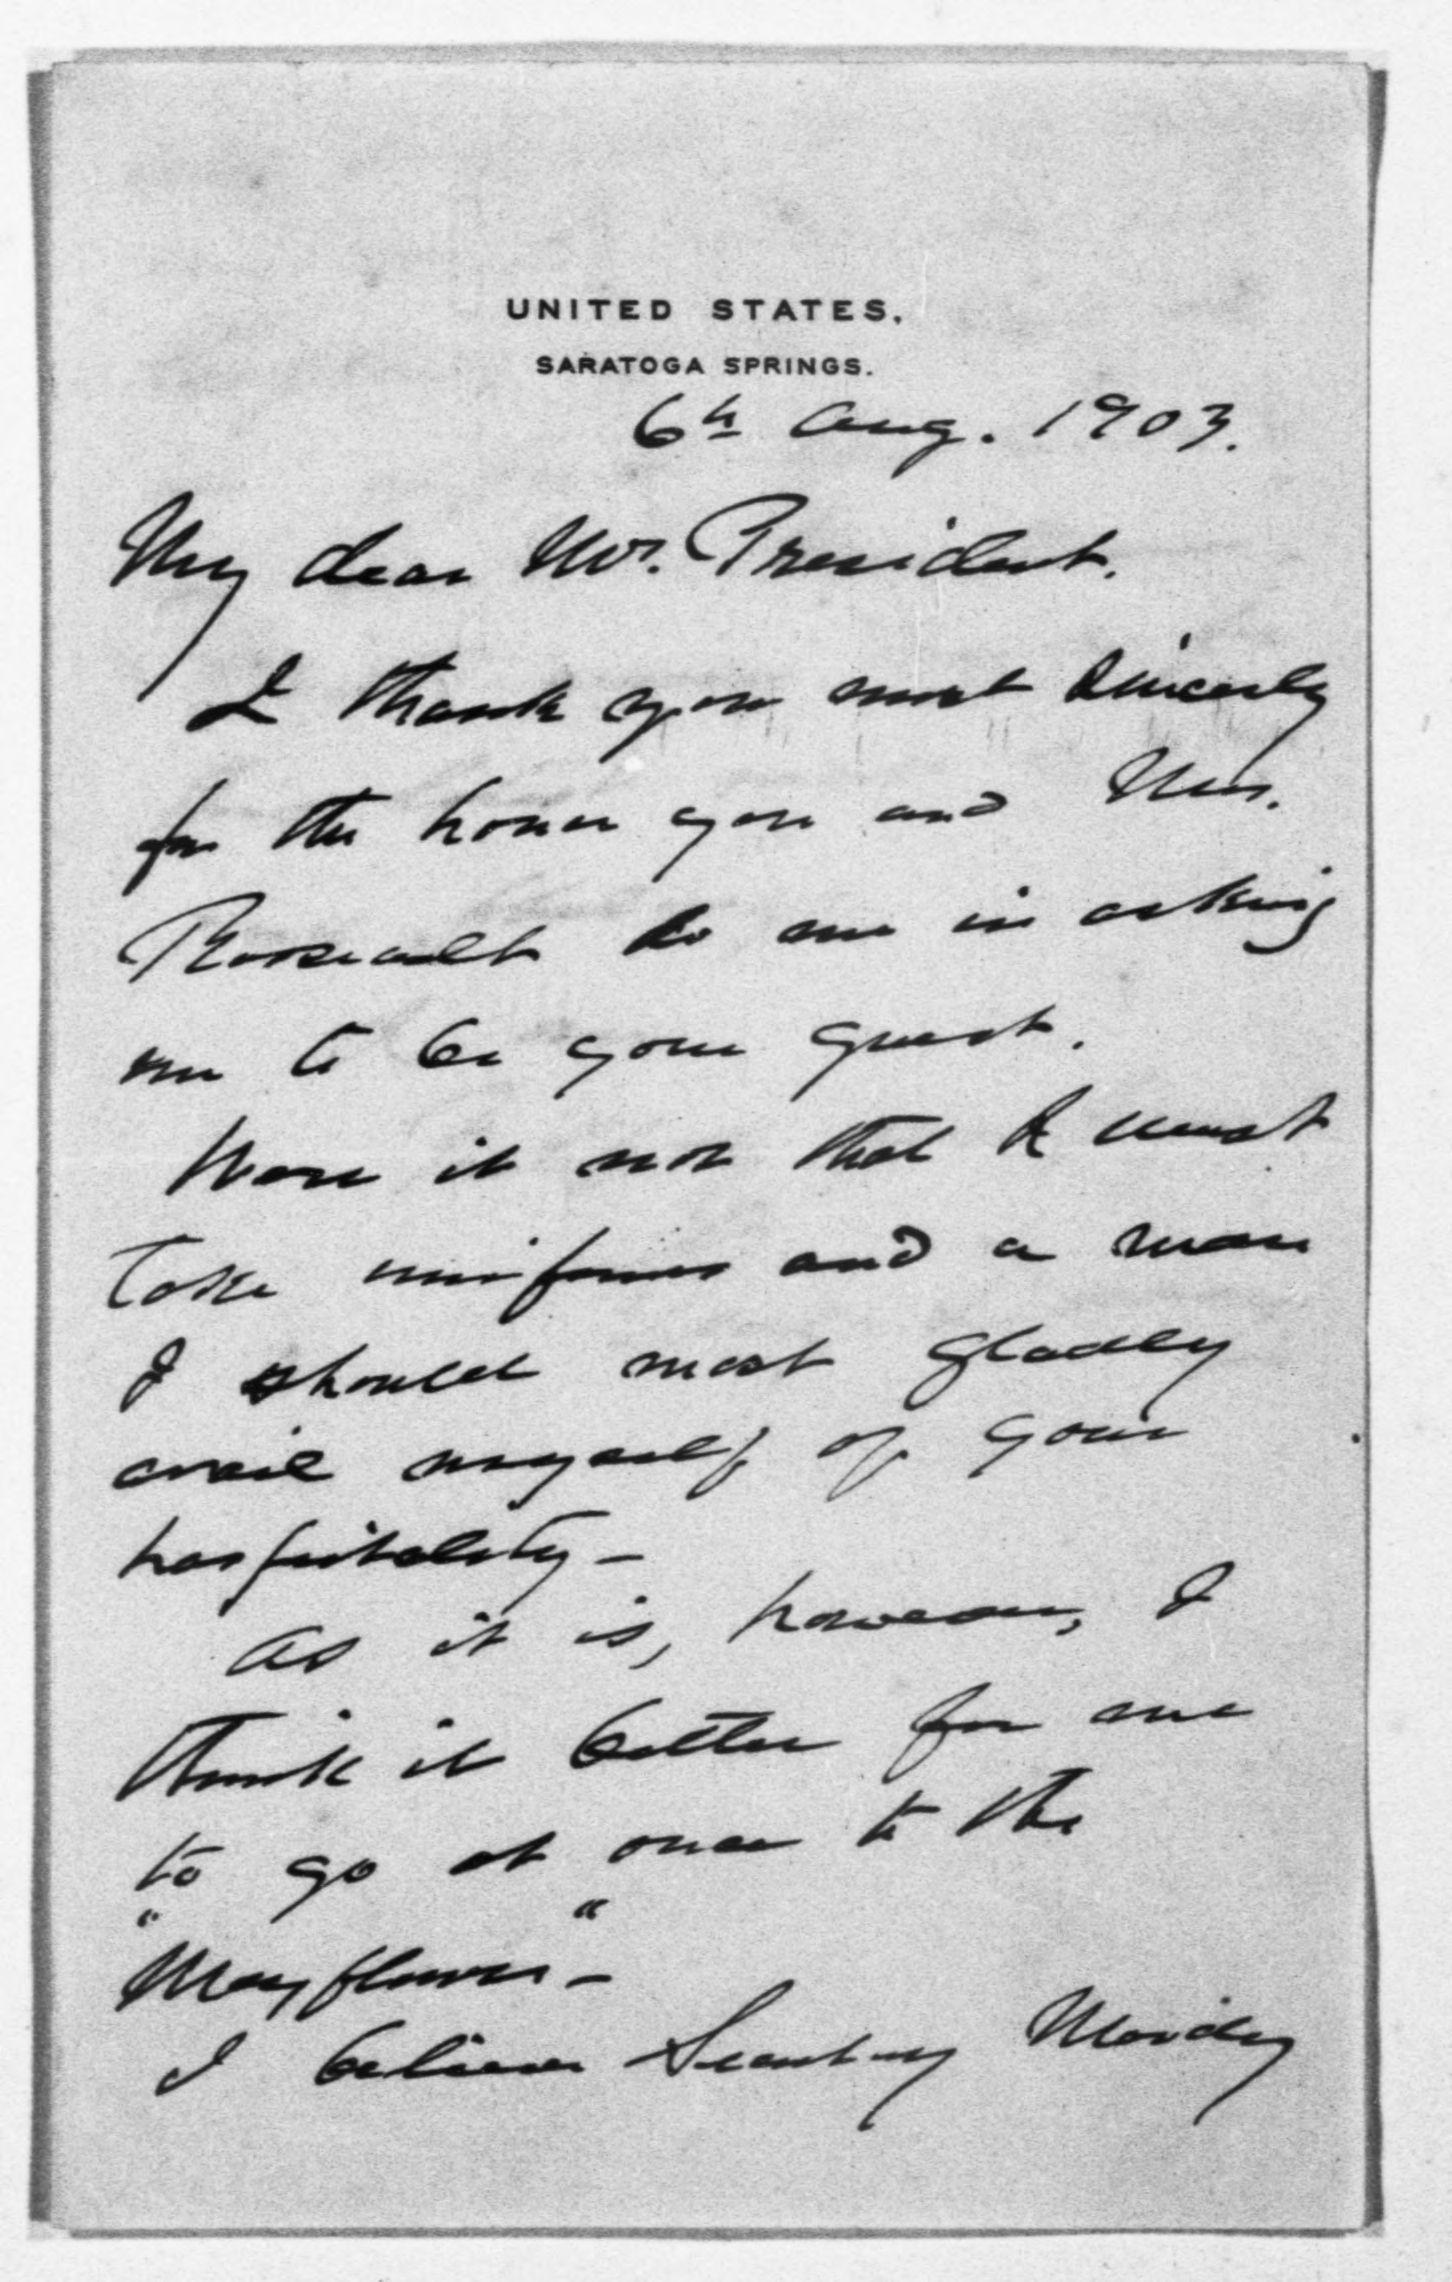 UNITED STATES.
SARATOGA SPRINGS.
6th Aug. 1903.
My dear Mr. President.
I thank you most sincerely
for the honor you and Mrs.
Roosevelt do me in asking
me to be your guest.
Were it not that I must
take uniforms and a man
I should most gladly
avail myself of your
hospitality -
As it is, however, I
think it better for me
to go at once to the
"Mayflower" -
I believe Secretary Moody